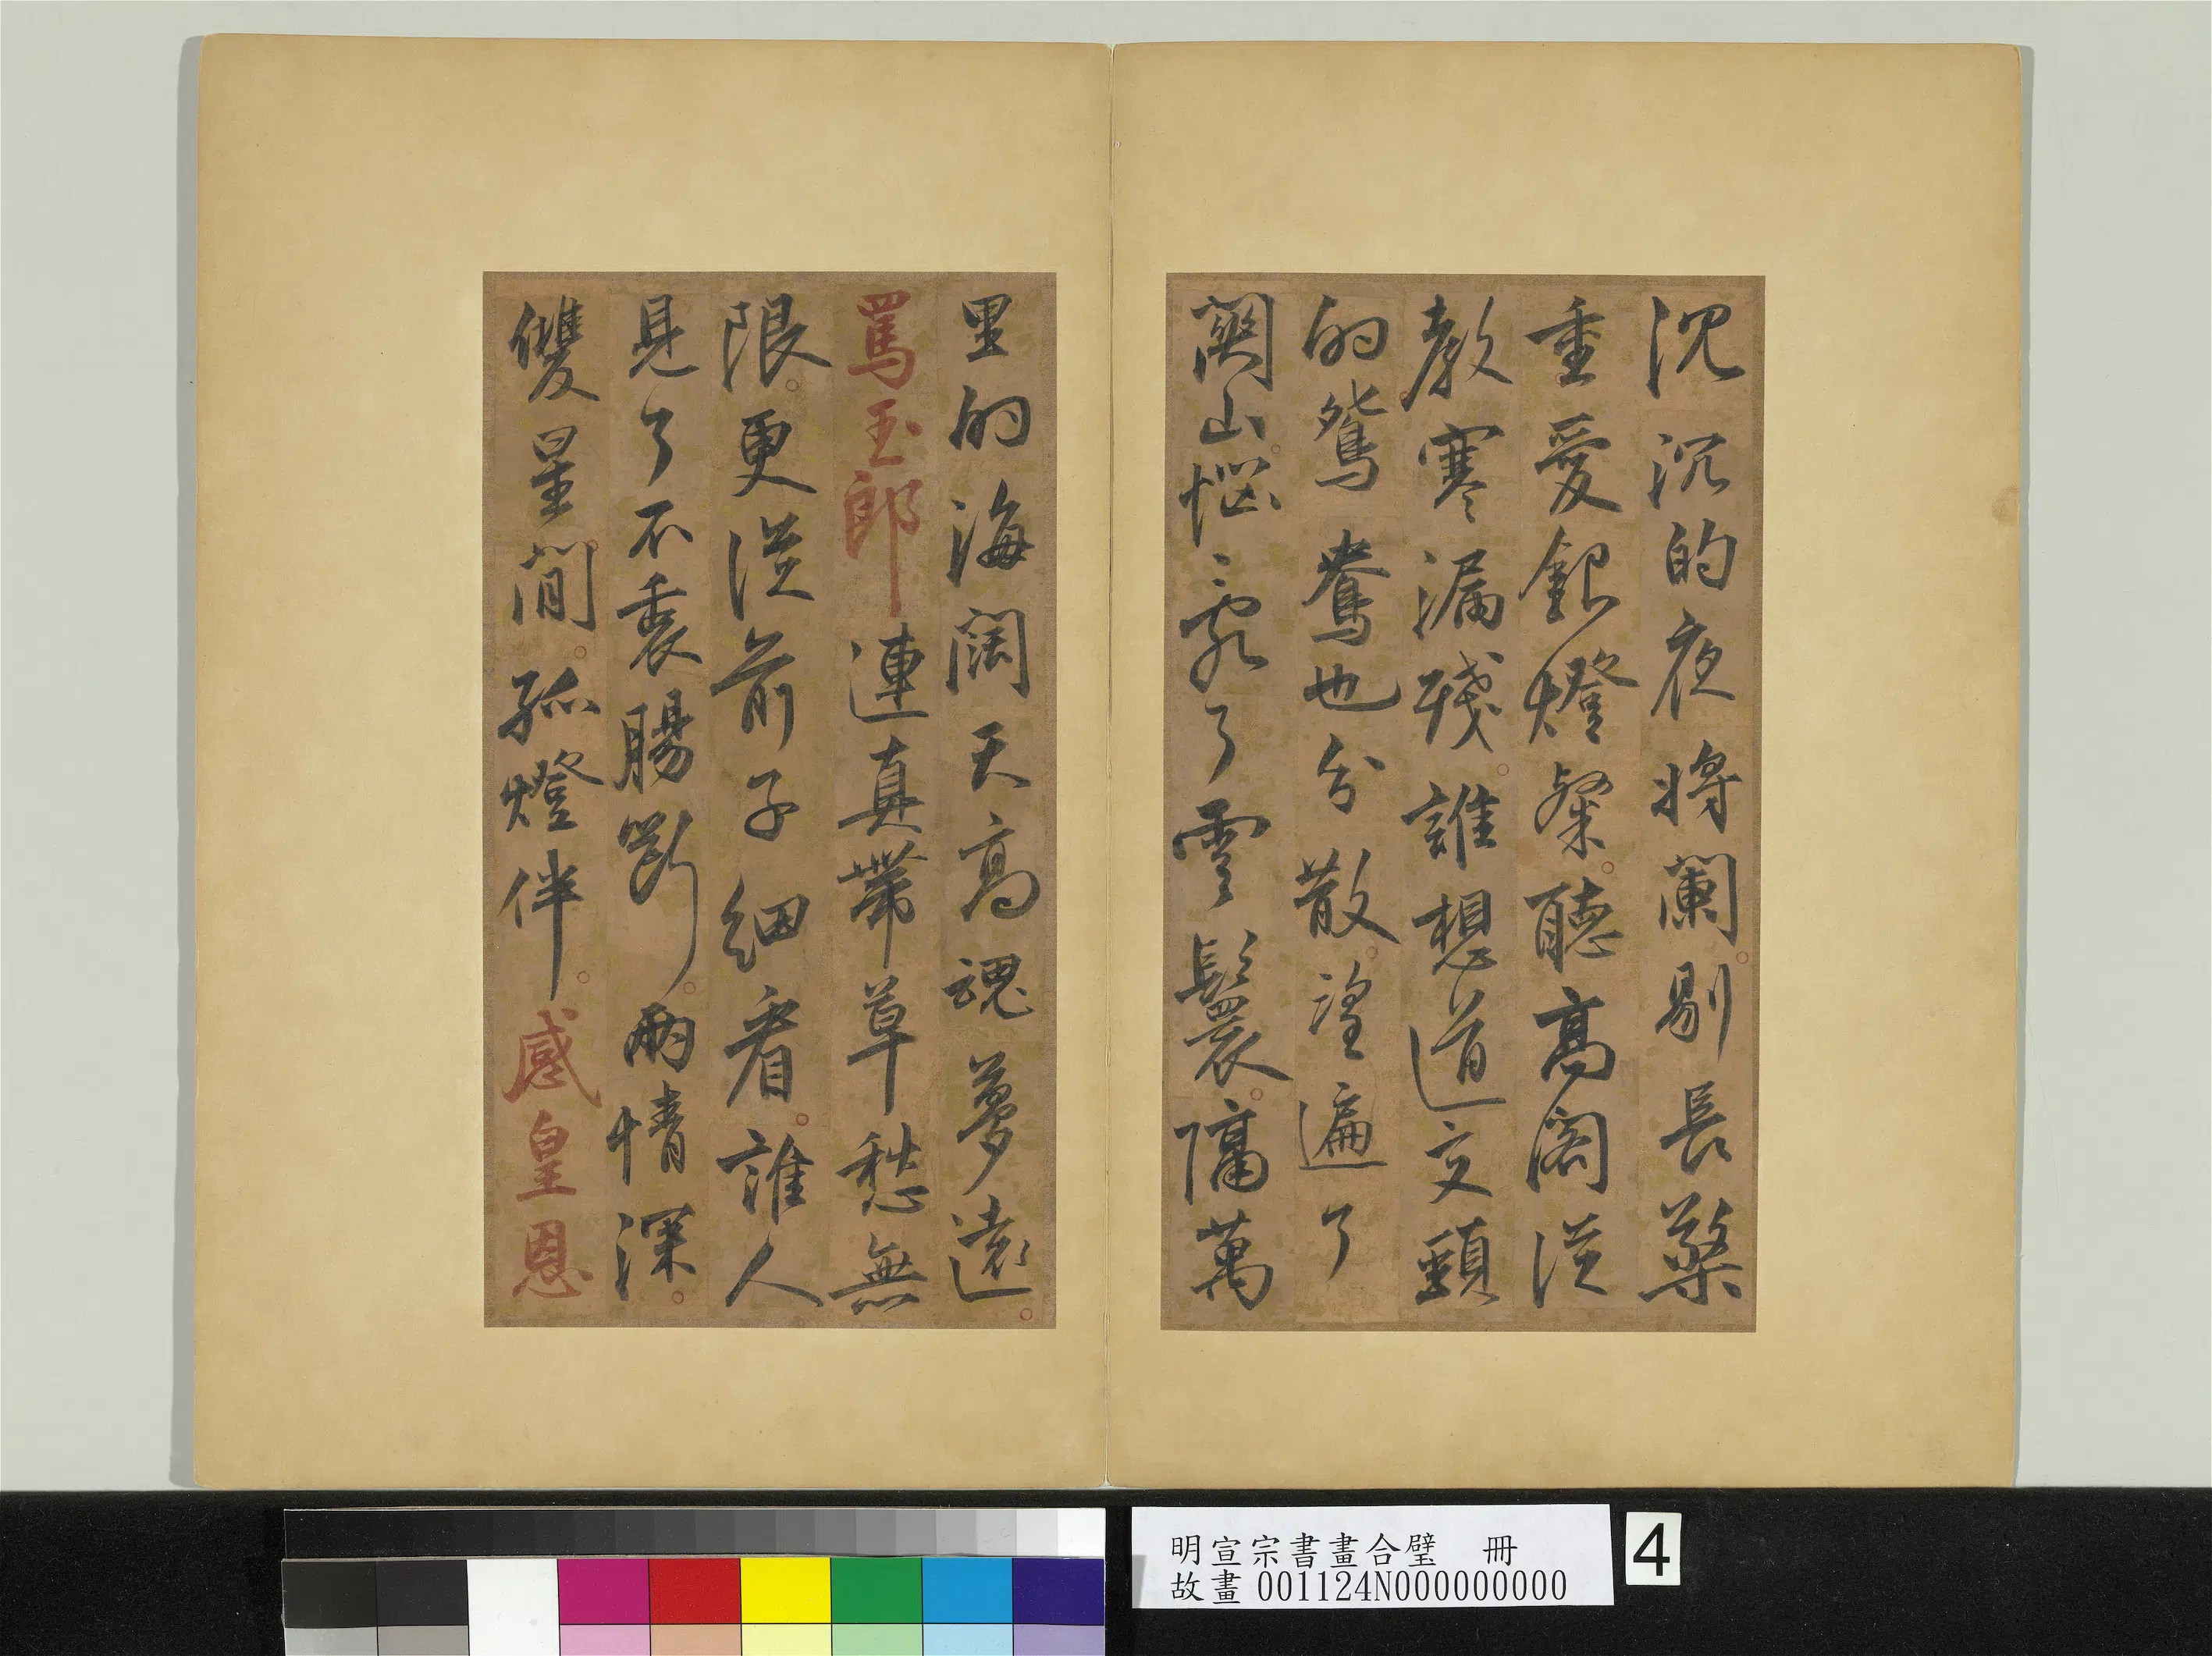 沉沉的夜將闌剔長檠
重愛銀燈粲聽高閣從
教寒漏殘誰想道交頸
的鴛鴦也分散望遍了
關山惱亂了雲鬟隔萬
里的海闊天高魂夢遠
罵玉郎連真帶草愁無
限更從前子細看誰人
見了不衷腸斷兩情深
雙星間孤燈伴感皇恩
明宣宗書畫合璧 冊
故畫001124N000000000
4